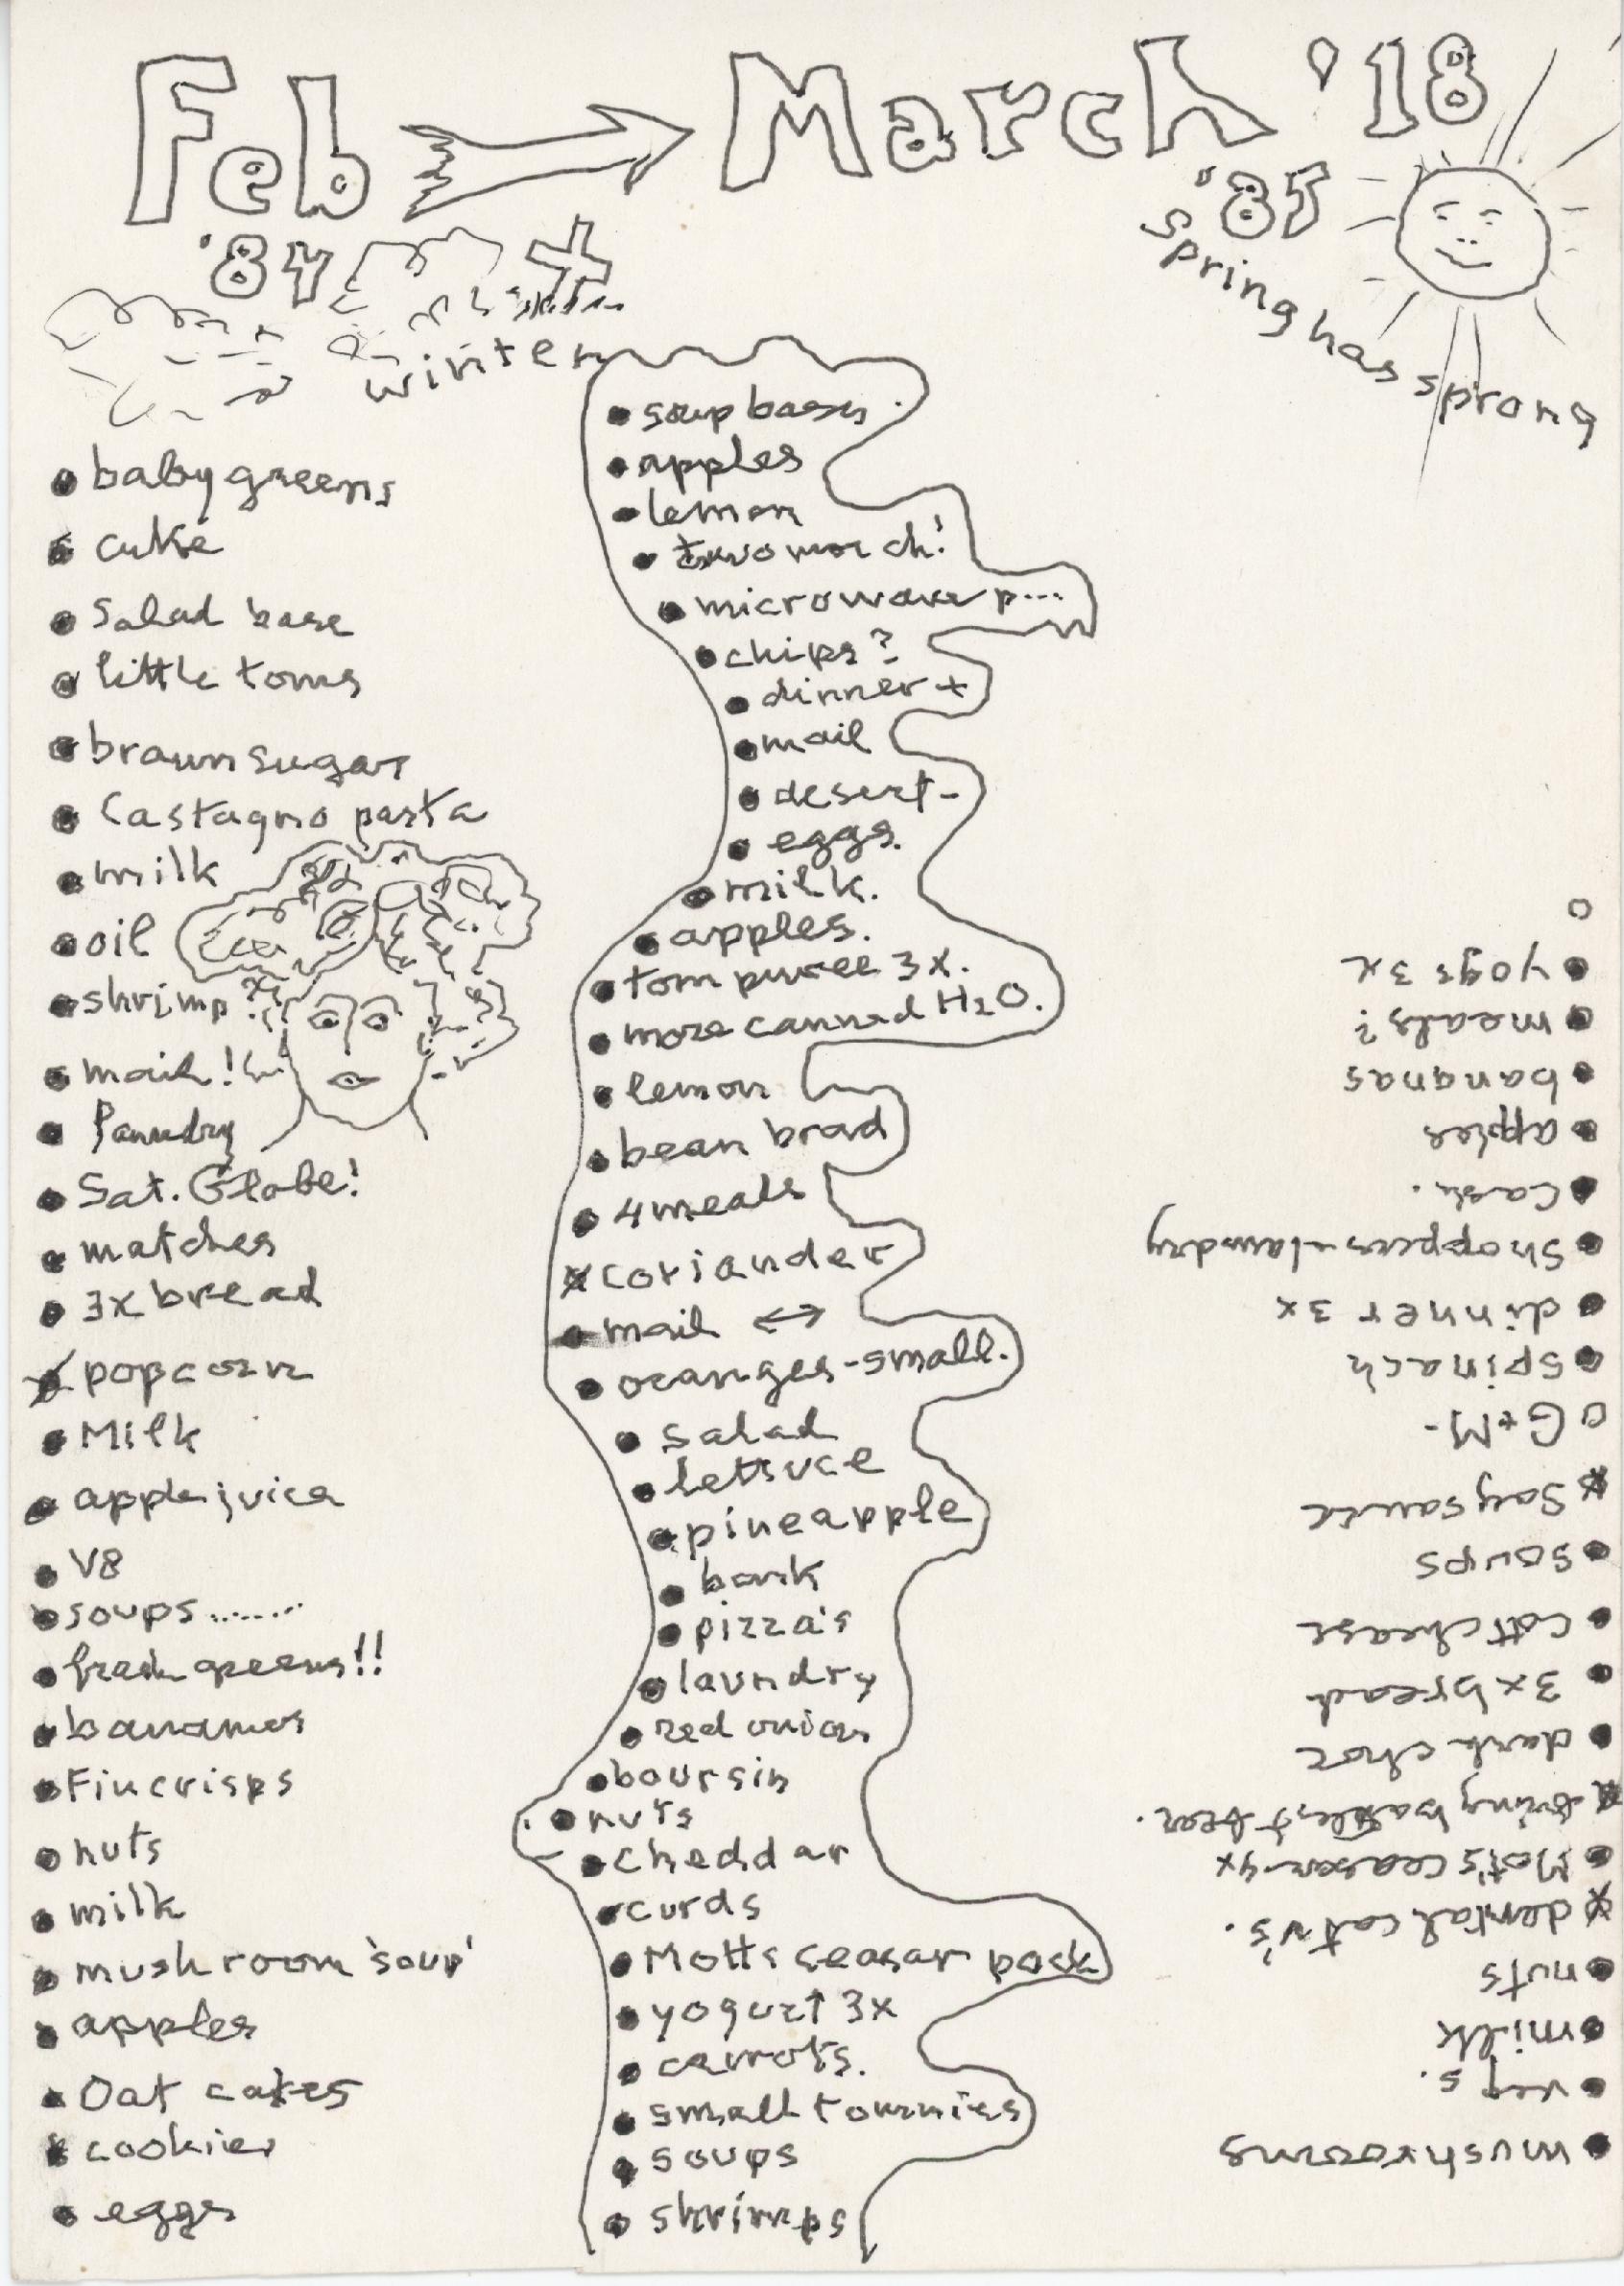 Feb → March '18
'84
'85
winter
spring has sprong
• baby greens
• cuke
• salad base
• little toms
• braun sugar
• Castagno pasta
• milk
• oil
• shrimp?
• mail!
• laundry
• Sat. Globe!
• matches
• 3x bread
• popcorn
• Milk
• apple juice
• V8
• soups........
• fresh greens!!
• bananas
• Fin crisps
• nuts
• milk
• mushroom 'soup'
• apples
• Oat cakes
• cookies
• eggs
• soup bases.
• apples
• lemon
• microwave p...
• chips?
• dinner +
• mail
• desert-
• eggs.
• milk.
• apples.
• tom puree 3x.
• more canned H2O.
• lemon
• bean brad
• 4 meals
x coriander
• mail ↔
• oranges-small.
• salad
• lettuce
• pineapple
• bank
• pizza's
• laundry
• red onion
• boursin
• nuts
• cheddar
• curds
• Motts ceasar pack
• yogurt 3x
• carrots.
• small tommies
• soups
• shrimps
• mushrooms
• veg's.
• milk
• nuts
x dental cat v's.
• Mot's ceasar 4x
• dark choc
• 3x bread
• cott chease
• soups
x Soy sauce
o G+M-
• spinach
• dinner 3x
• shoppers-laundry
• Cash.
• apples
• bananas
• meals?
• yogs 3x
o